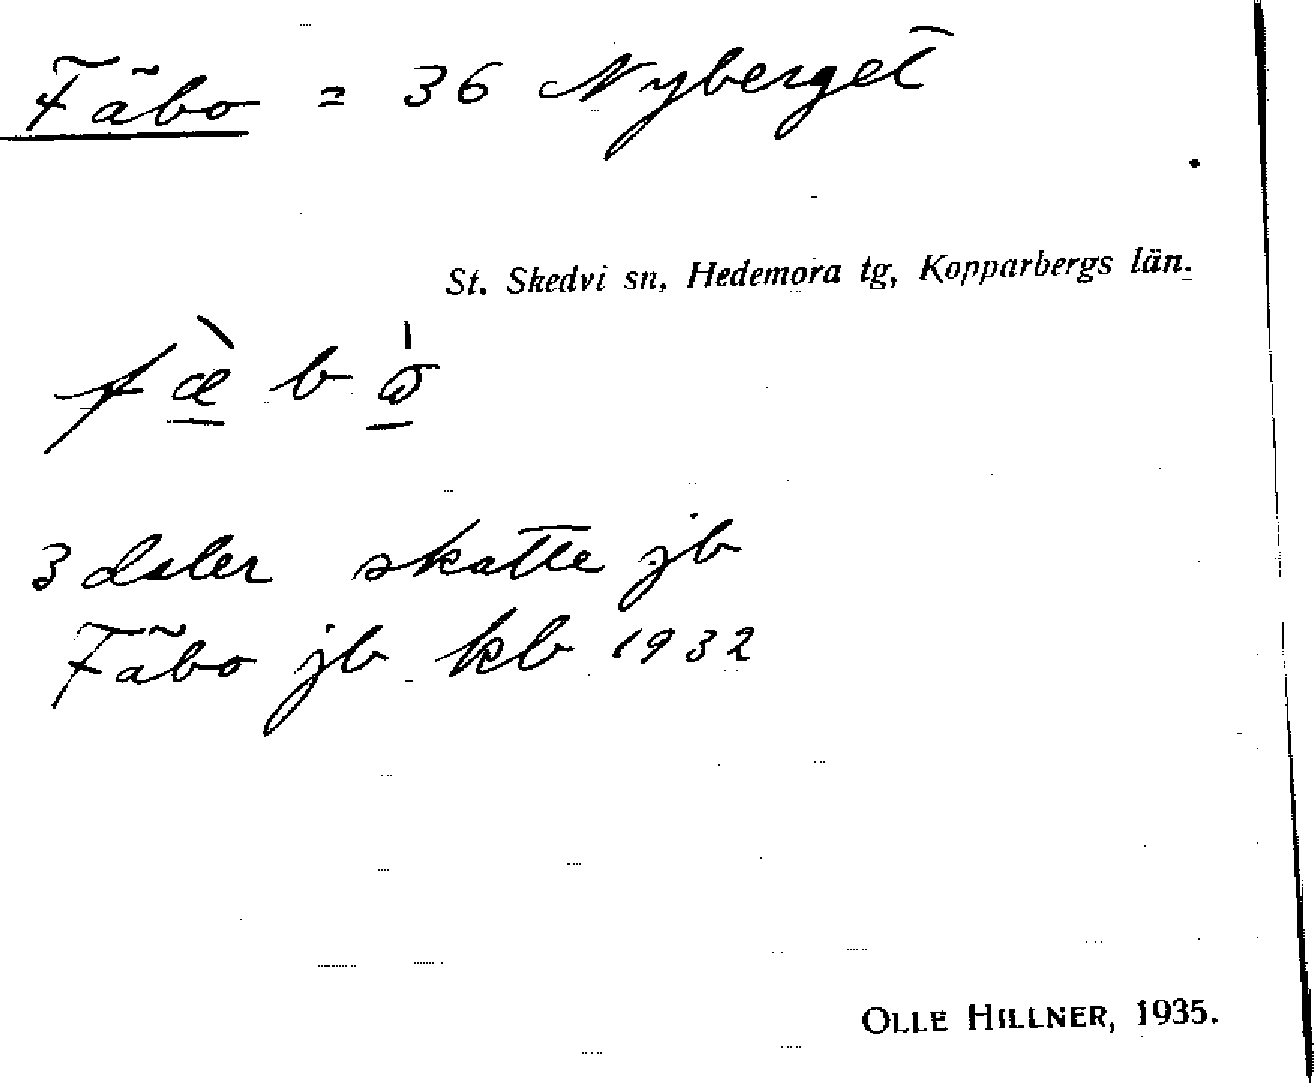 Fäbo = 36 Nyberget
St. Skedvi sn, Hedemora tg, Kopparbergs län.
fæ̀bω̄̍
3 daler skatte jb
Fäbo jb kb 1932
OLLE HILLNER, 1935.